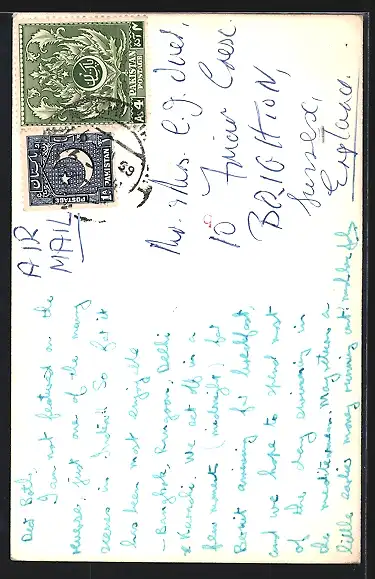 Dear Both,
I am not featured on the
reverse, just one of the many
scenes in India. So far it
has been most enjoyable
- Bangkok, Rangoon, Delhi
& Karachi. We set off in a
few moments (midnight) for
Beirut arriving for breakfast,
and we hope to spend most
of the day swimming in
the mediterranean. May turns a
little ladies money running out
AIR
MAIL
Mr. & Mrs. C. J.
10 Friar Cresc.
BRIGHTON,
Sussex,
England.
PAKISTAN
POSTAGE
As. 4
PAKISTAN
POSTAGE
59